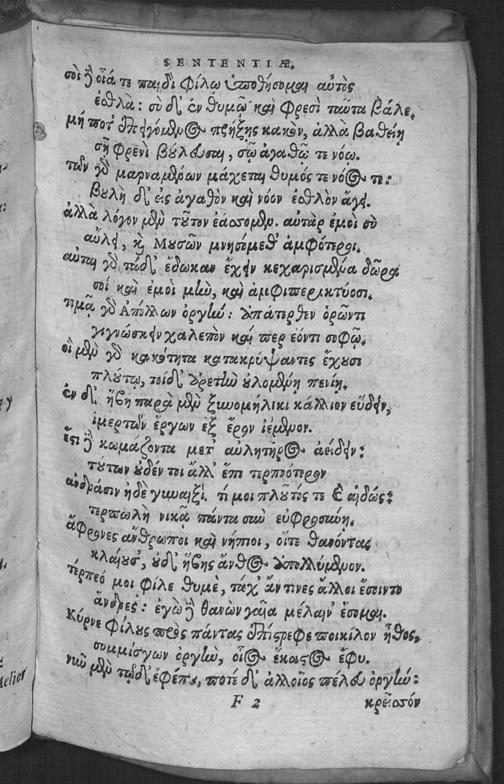 SENTENTIÆ.
σοὶ δ' οἷά τε παιδὶ φίλῳ ὑποθήσομαι αὐτὸς
ἐσθλά: σὺ δ' ἐν θυμῷ καὶ φρεσὶ ταῦτα βάλε.
μή ποτ' ἐπειγόμενος πρήξῃς κακὸν, ἀλλὰ βαθείῃ
σῇ φρενὶ βούλευσαι, σῷ ἀγαθῷ τε νόῳ.
τῶν γὰρ μαρναμένων μάχεται θυμός τε νόος τε:
βουλὴ δ' εἰς ἀγαθὸν καὶ νόον ἐσθλὸν ἄγει.
ἀλλὰ λόγον μὲν τοῦτον ἐάσομεν. αὐτὰρ ἐμοὶ σὺ
αὔλει, καὶ Μυσῶν μνησόμεθ' ἀμφότεροι.
αὗται γὰρ τάδ' ἔδωκαν ἔχειν κεχαρισμένα δῶρα
σοὶ καὶ ἐμοὶ μὲν, καὶ ἀμφιπερικτύοσι.
τιμα γὰρ Ἀπόλλων ὀργὴν: ὑπάτερθεν ὁρῶντι
γιγνώσκειν χαλεπὸν καί περ ἐόντι σοφῷ.
οἱ μὲν γὰρ κακότητα κατακρύψαντες ἔχουσι
πλούτῳ, τοὶ δ' ἀρετὴν οὐλομένῃ πενίῃ.
ἐν δ' ἥβῃ παρὰ μὲν ξυνομήλικι κάλλιον εὕδειν,
ἱμερτῶν ἔργων ἐξ ἔρον ἱέμενον.
ἔστι δὲ κωμάζοντα μετ' αὐλητῆρος ἀείδειν:
τούτων οὐδέν τοι ἄλλ' ἔπι τερπνότερον
ἀνδράσιν ἠδὲ γυναιξὶ. τί μοι πλοῦτός τε καὶ αἰδώς;
τερπωλὴ νικᾷ πάντα σὺν εὐφροσύνῃ.
ἄφρονες ἄνθρωποι καὶ νήπιοι, οἵτε θανόντας
κλαίουσ', οὐδ' ἥβης ἄνθος ἀπολλύμενον.
τέρπεό μοι φίλε θυμὲ, τάχ' ἄν τινες ἄλλοι ἔσοιντο
ἄνδρες: ἐγὼ δὲ θανὼν γαῖα μέλαιν' ἔσομαι.
Κύρνε φίλους πρὸς πάντας ἐπίστρεφε ποικίλον ἦθος,
συμμίσγων ὀργὴν, οἷος ἕκαστος ἔφυ.
νῦν μὲν τῷδ' ἐφέπου, ποτὲ δ' ἀλλοῖος πέλευ ὀργὴν:
F 2 κρεῖσσόν